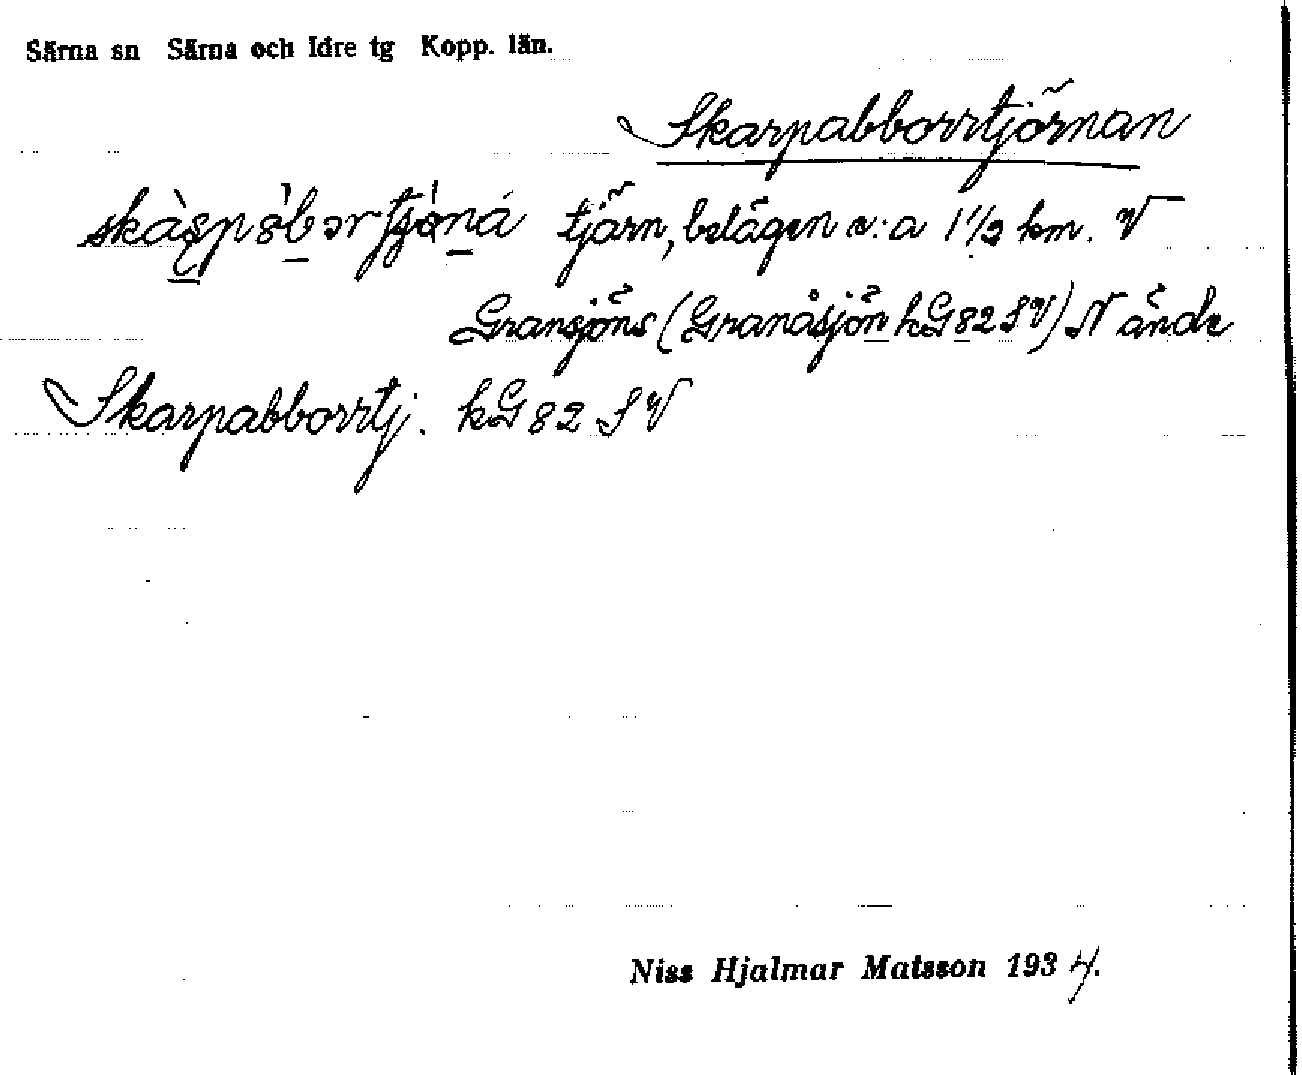 Särna sn Särna och Idre tg Kopp. län.
Skarpabborrtjörnan
tjärn, belägen c:a 1 1/2 km. V
Gransjöns (Granåsjön kG82SV) N ände
Skarpabborrtj. kG82SV
Niss Hjalmar Matsson 1934.